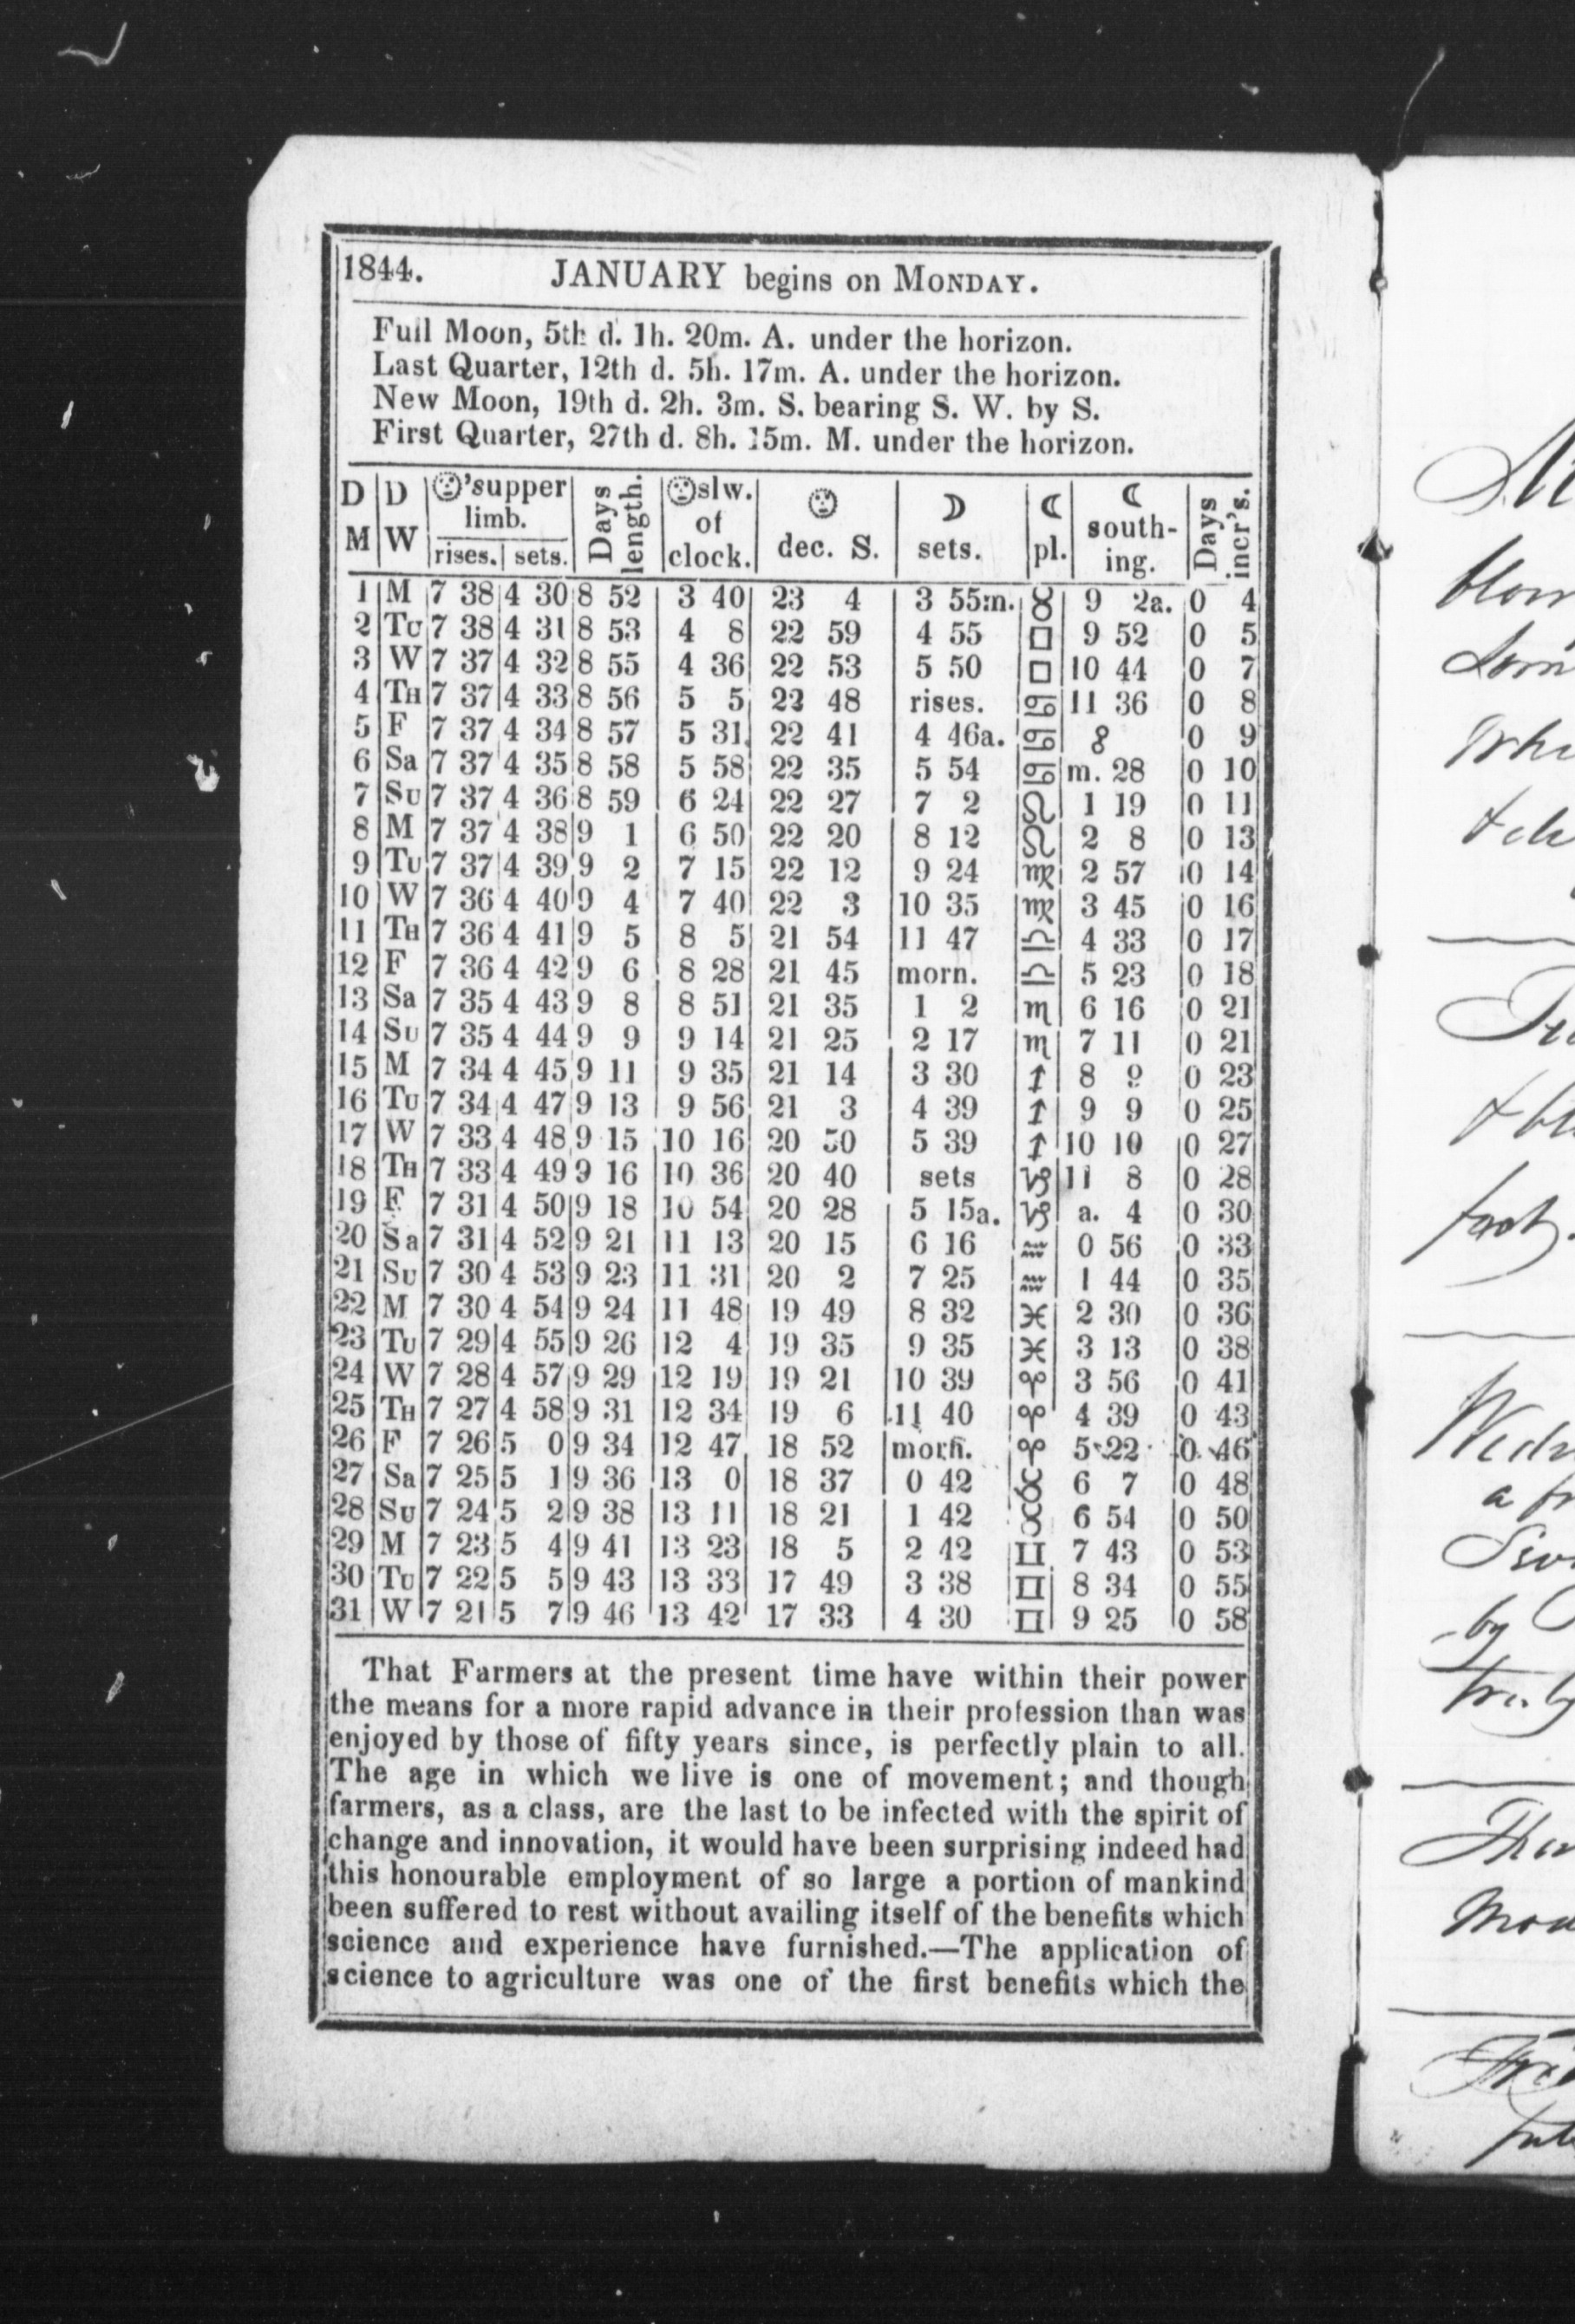 1844. JANUARY begins on MONDAY.
Full Moon, 5th d. 1h. 20m. A. under the horizon.
Last Quarter, 12th d. 5h. 17m. A. under the horizon.
New Moon, 19th d. 2h. 3m. S. bearing S. W. by S.
First Quarter, 27th d. 8h. 15m. M. under the horizon.
D M D W ☉'supper limb. rises. sets. Days length. ☉slw. of clock. ☉ dec. S. ☽ sets. ☾ pl. ☾ south-ing. Days incr's.
1 M 7 38 4 30 8 52 3 40 23 4 3 55m. ♉ 9 2a. 0 4
2 TU 7 38 4 31 8 53 4 8 22 59 4 55 □ 9 52 0 5
3 W 7 37 4 32 8 55 4 36 22 53 5 50 □ 10 44 0 7
4 TH 7 37 4 33 8 56 5 5 22 48 rises. ♋ 11 36 0 8
5 F 7 37 4 34 8 57 5 31 22 41 4 46a. ♋ 8 0 9
6 Sa 7 37 4 35 8 58 5 58 22 35 5 54 ♋ m. 28 0 10
7 SU 7 37 4 36 8 59 6 24 22 27 7 2 ♌ 1 19 0 11
8 M 7 37 4 38 9 1 6 50 22 20 8 12 ♌ 2 8 0 13
9 TU 7 37 4 39 9 2 7 15 22 12 9 24 ♍ 2 57 0 14
10 W 7 36 4 40 9 4 7 40 22 3 10 35 ♍ 3 45 0 16
11 TH 7 36 4 41 9 5 8 5 21 54 11 47 ♎ 4 33 0 17
12 F 7 36 4 42 9 6 8 28 21 45 morn. ♎ 5 23 0 18
13 Sa 7 35 4 43 9 8 8 51 21 35 1 2 ♏ 6 16 0 21
14 SU 7 35 4 44 9 9 9 14 21 25 2 17 ♏ 7 11 0 21
15 M 7 34 4 45 9 11 9 35 21 14 3 30 ♐ 8 9 0 23
16 TU 7 34 4 47 9 13 9 56 21 3 4 39 ♐ 9 9 0 25
17 W 7 33 4 48 9 15 10 16 20 50 5 39 ♐ 10 10 0 27
18 TH 7 33 4 49 9 16 10 36 20 40 sets ♑ 11 8 0 28
19 F 7 31 4 50 9 18 10 54 20 28 5 15a. ♑ a. 4 0 30
20 Sa 7 31 4 52 9 21 11 13 20 15 6 16 ♒ 0 56 0 33
21 SU 7 30 4 53 9 23 11 31 20 2 7 25 ♒ 1 44 0 35
22 M 7 30 4 54 9 24 11 48 19 49 8 32 ♓ 2 30 0 36
23 TU 7 29 4 55 9 26 12 4 19 35 9 35 ♓ 3 13 0 38
24 W 7 28 4 57 9 29 12 19 19 21 10 39 ♈ 3 56 0 41
25 TH 7 27 4 58 9 31 12 34 19 6 11 40 ♈ 4 39 0 43
26 F 7 26 5 0 9 34 12 47 18 52 morn. ♈ 5 22 0 46
27 Sa 7 25 5 1 9 36 13 0 18 37 0 42 ♉ 6 7 0 48
28 SU 7 24 5 2 9 38 13 11 18 21 1 42 ♉ 6 54 0 50
29 M 7 23 5 4 9 41 13 23 18 5 2 42 ♊ 7 43 0 53
30 TU 7 22 5 5 9 43 13 33 17 49 3 38 ♊ 8 34 0 55
31 W 7 21 5 7 9 46 13 42 17 33 4 30 ♊ 9 25 0 58
That Farmers at the present time have within their power
the means for a more rapid advance in their profession than was
enjoyed by those of fifty years since, is perfectly plain to all.
The age in which we live is one of movement; and though
farmers, as a class, are the last to be infected with the spirit of
change and innovation, it would have been surprising indeed had
this honourable employment of so large a portion of mankind
been suffered to rest without availing itself of the benefits which
science and experience have furnished.—The application of
science to agriculture was one of the first benefits which the